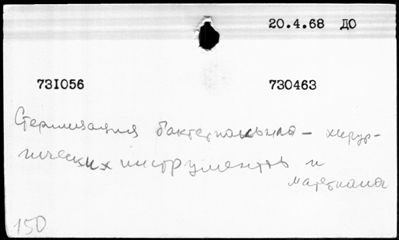 20.4.68 ДО
73I056 730463
Стерилизация бактериально- хирур-
гических инструментов и
материала
150